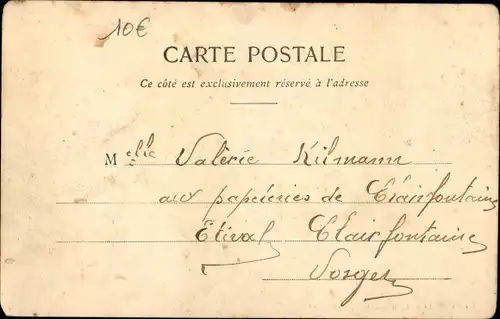 10€
CARTE POSTALE
Ce côté est exclusivement réservé à l'adresse
Melle Valérie Kilmann
aux papeteries de Clairfontaine
Etival Clairfontaine
Vosges